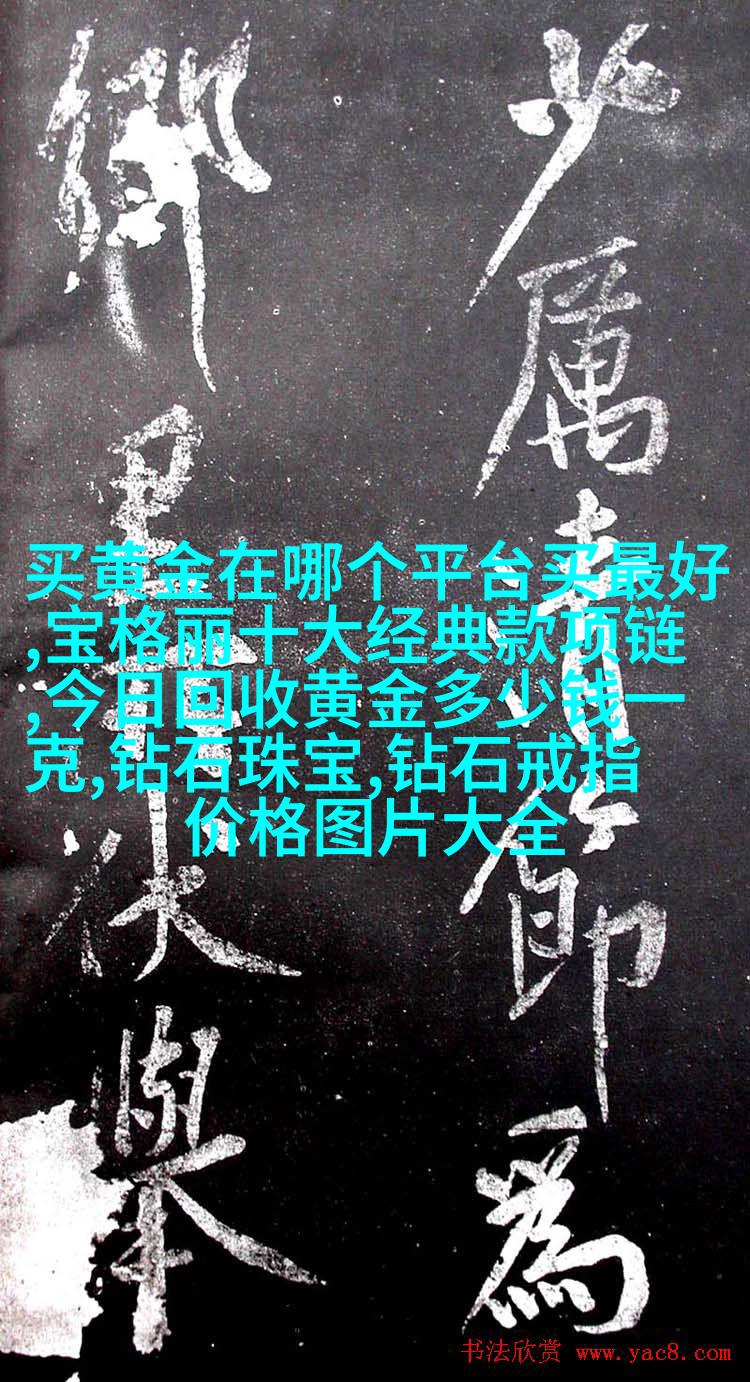 少厲清節為
鄉里伏舉
买黄金在哪个平台买最好
,宝格丽十大经典款项链
,今日回收黄金多少钱一
克,钻石珠宝,钻石戒指
价格图片大全
书法欣赏 www.yac8.com